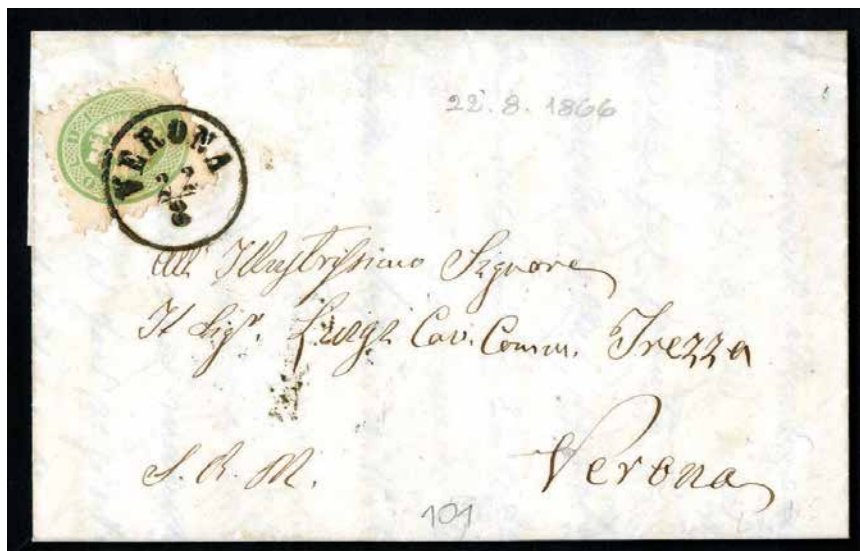 22. 8. 1866
VERONA
22
8
All' Illustrissimo Signore
Il Sigr. Luigi Cav. Comm. Trezza
S. R. M.
Verona
101